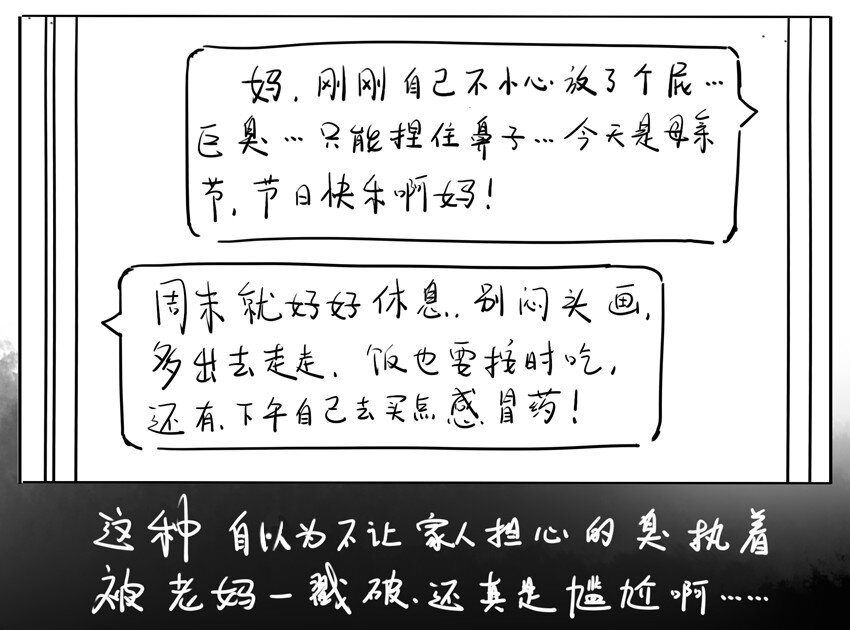 妈，刚刚自己不小心放了个屁…
巨臭…只能捏住鼻子…今天是母亲
节，节日快乐啊妈！
周末就好好休息..别闷头画，
多出去走走、饭也要按时吃，
还有、下午自己去买点感冒药！
这种自以为不让家人担心的臭执着
被老妈一戳破、还真是尴尬啊……